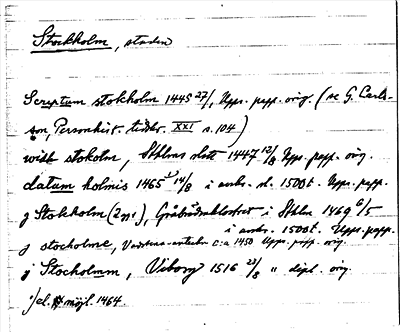 Stockholm, staden
Scriptum stokholm 1445 27/, Upps. papp. orig. (se G. Carls-
son, Personhist. tidskr. XXI s. 104)
widh stokolm, Sthlms slott 1447 12/8 Upps. papp. orig.
datum holmis 1465 14/8 i avskr. sl. 1500t. Upps. papp.
j Stokholm (2 ggr), Gråbrödraklostret i Sthlm 1469 6/5
i avskr. 1500t. Upps. papp.
j stocholme, Vadstena c:a 1450 Upps. papp. orig.
j Stocholmm, Viborg 1516 21/8 " dipl. orig.
1) el. möjl. 1464.